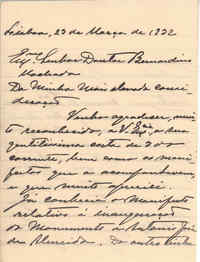 Lisboa, 23 de Março de 1932
Exmo
Senhor Doutor Bernardino
Machado
Da Minha Mais elevada consi-
deração
Venho agradecer, mui
to reconhecido, a V. Exa, a sua
gentilissima carta de 2 do
corrente, bem como os mani-
festos que a acompanhavam,
e que muito apreciei.
Já conhecia o Manifesto
relativo à inauguração
do Monumento a Antonio José
de Almeida. Do outro tinha